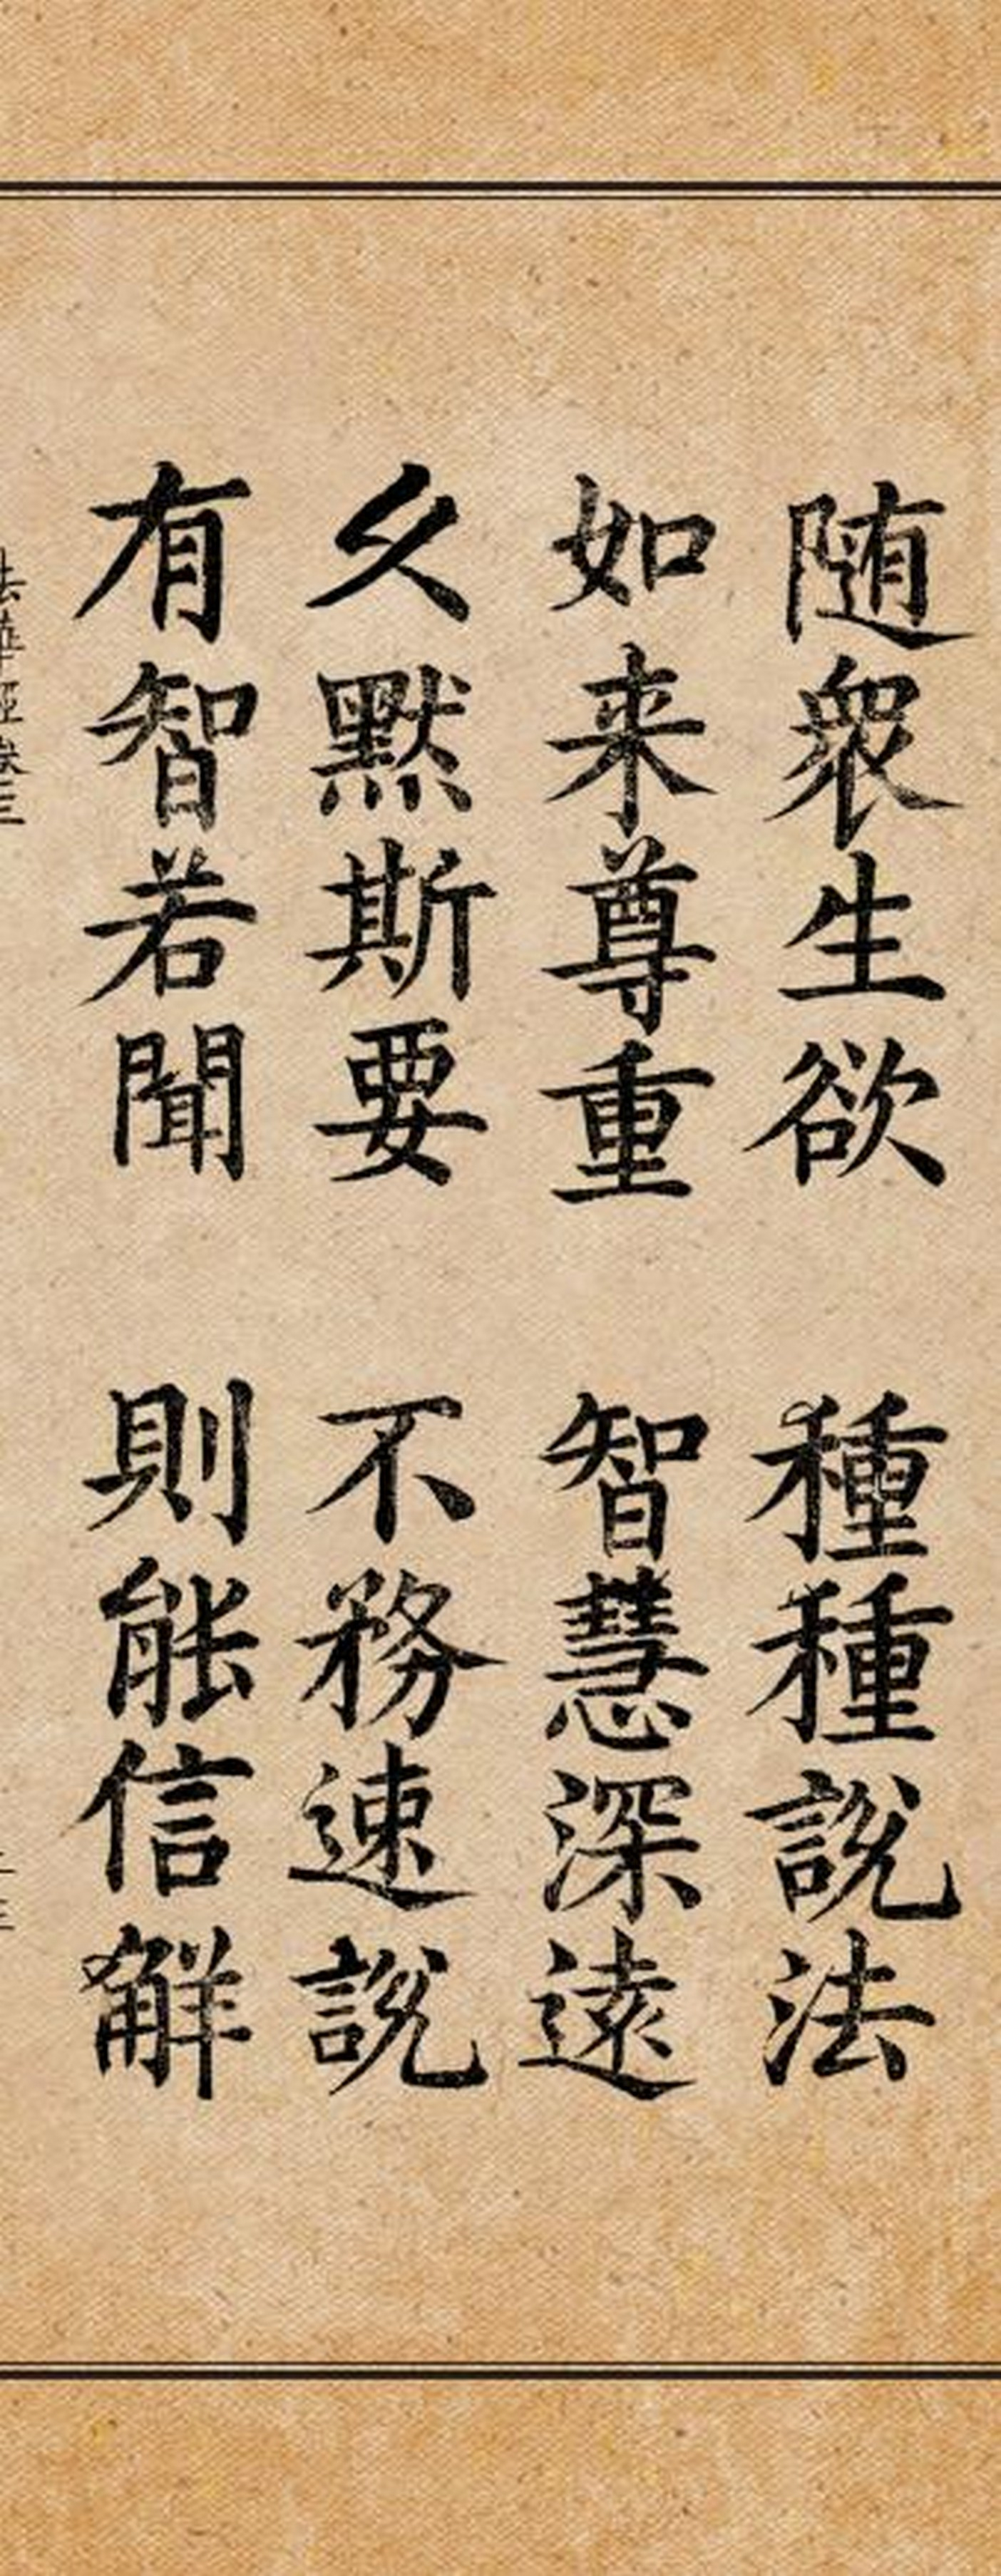 随衆生欲 種種説法
如来尊重 智慧深遠
久默斯要 不務速説
有智若聞 則能信解
法華經卷三